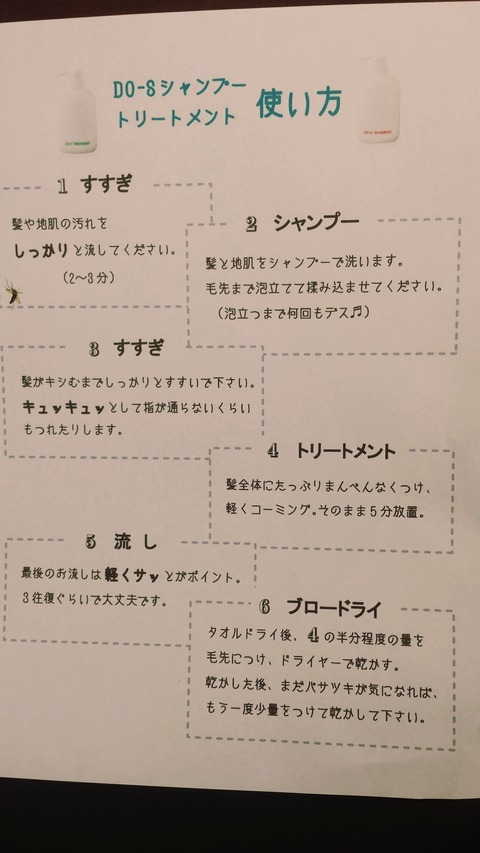 DO-Sシャンプー
トリートメント 使い方
1 すすぎ
髪や地肌の汚れを
しっかりと流してください。
(2〜3分)
2 シャンプー
髪と地肌をシャンプーで洗います。
毛先まで泡立てて揉み込ませてください。
(泡立つまで何回もデス♬)
3 すすぎ
髪がキシむまでしっかりとすすいで下さい。
キュッキュッとして指が通らないくらい
もつれたりします。
4 トリートメント
髪全体にたっぷりまんべんなくつけ、
軽くコーミング。そのまま5分放置。
5 流し
最後のお流しは軽くサッとがポイント。
3往復ぐらいで大丈夫です。
6 ブロードライ
タオルドライ後、4の半分程度の量を
毛先につけ、ドライヤーで乾かす。
乾かした後、まだパサツキが気になれば、
もう一度少量をつけて乾かして下さい。